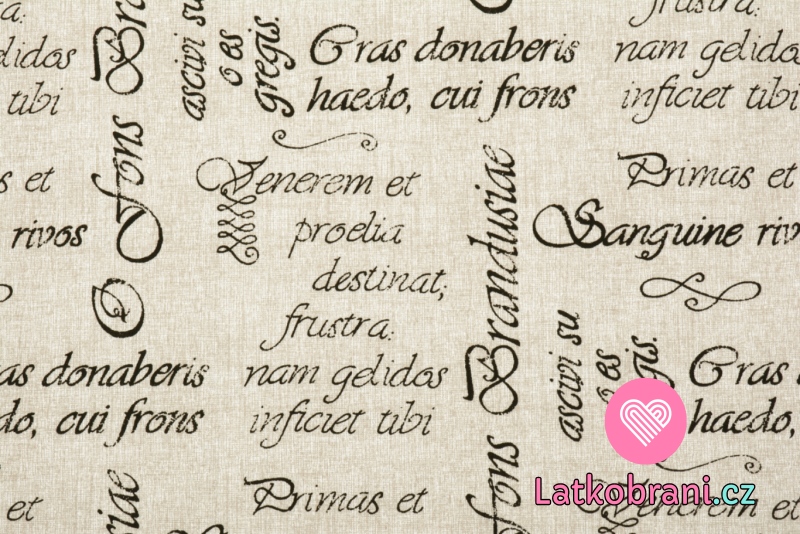 tibi
et
rivos
as donaberis
do, cui frons
et
O fons Bra
ascivi su
o es
gregis.
Cras donaberis
haedo, cui frons
Venerem et
proelia
destinat;
frustra:
nam gelidos
inficiet tibi
Primas et
fons Brandusiae
ascivi su
es
gis.
frustra:
nam gelidos
inficiet tibi
Primas et
Sanguine riv
Cras
haedo,
Venerem et
siae
Latkobrani.cz